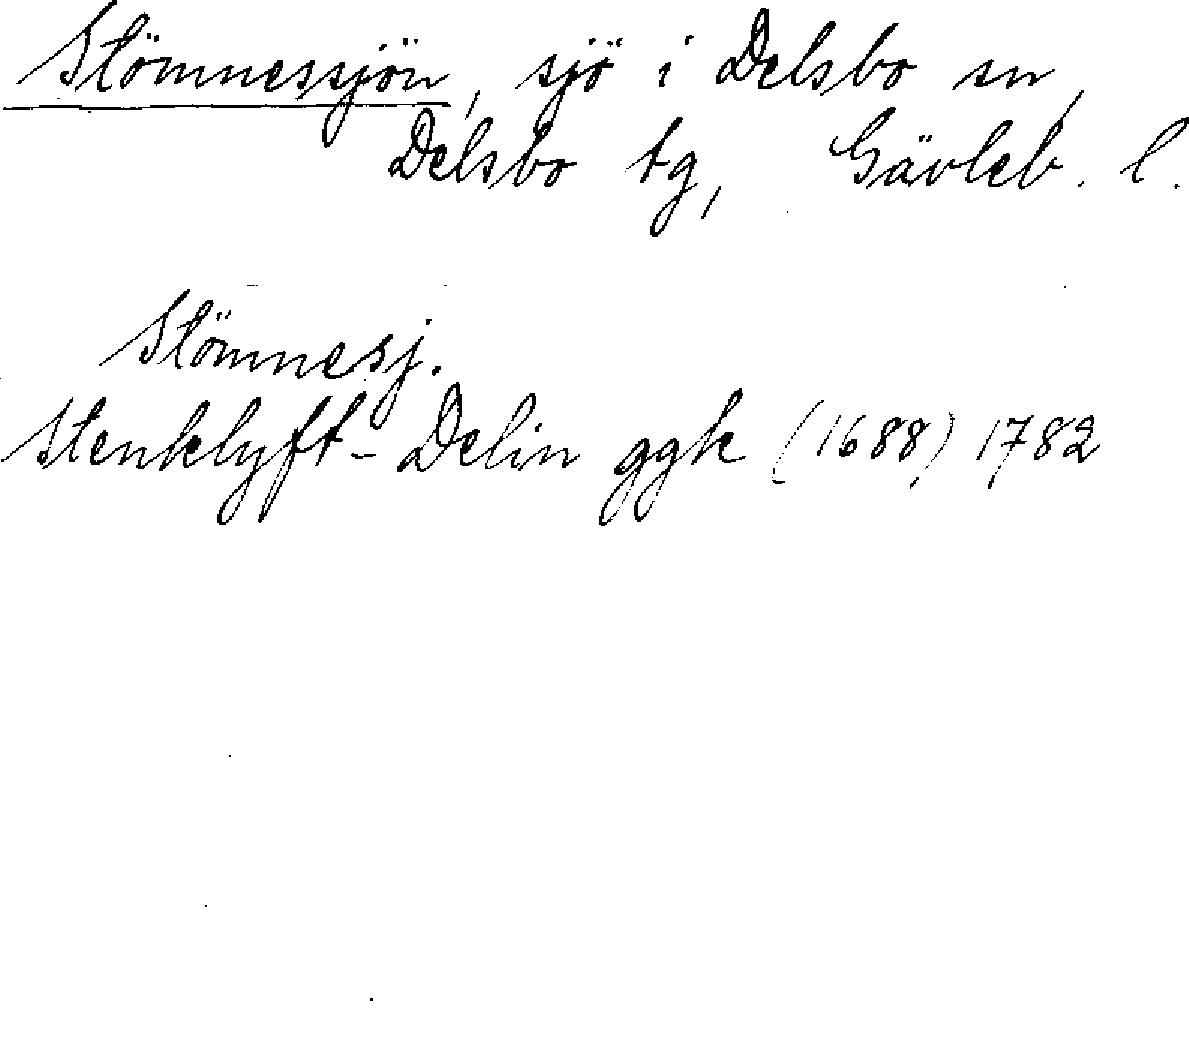 Stömnessjön, sjö i Delsbo sn,
Delsbo tg, Gävleb. l.
Stömnesj.
Stenklyft-Delin ggk (1688) 1782